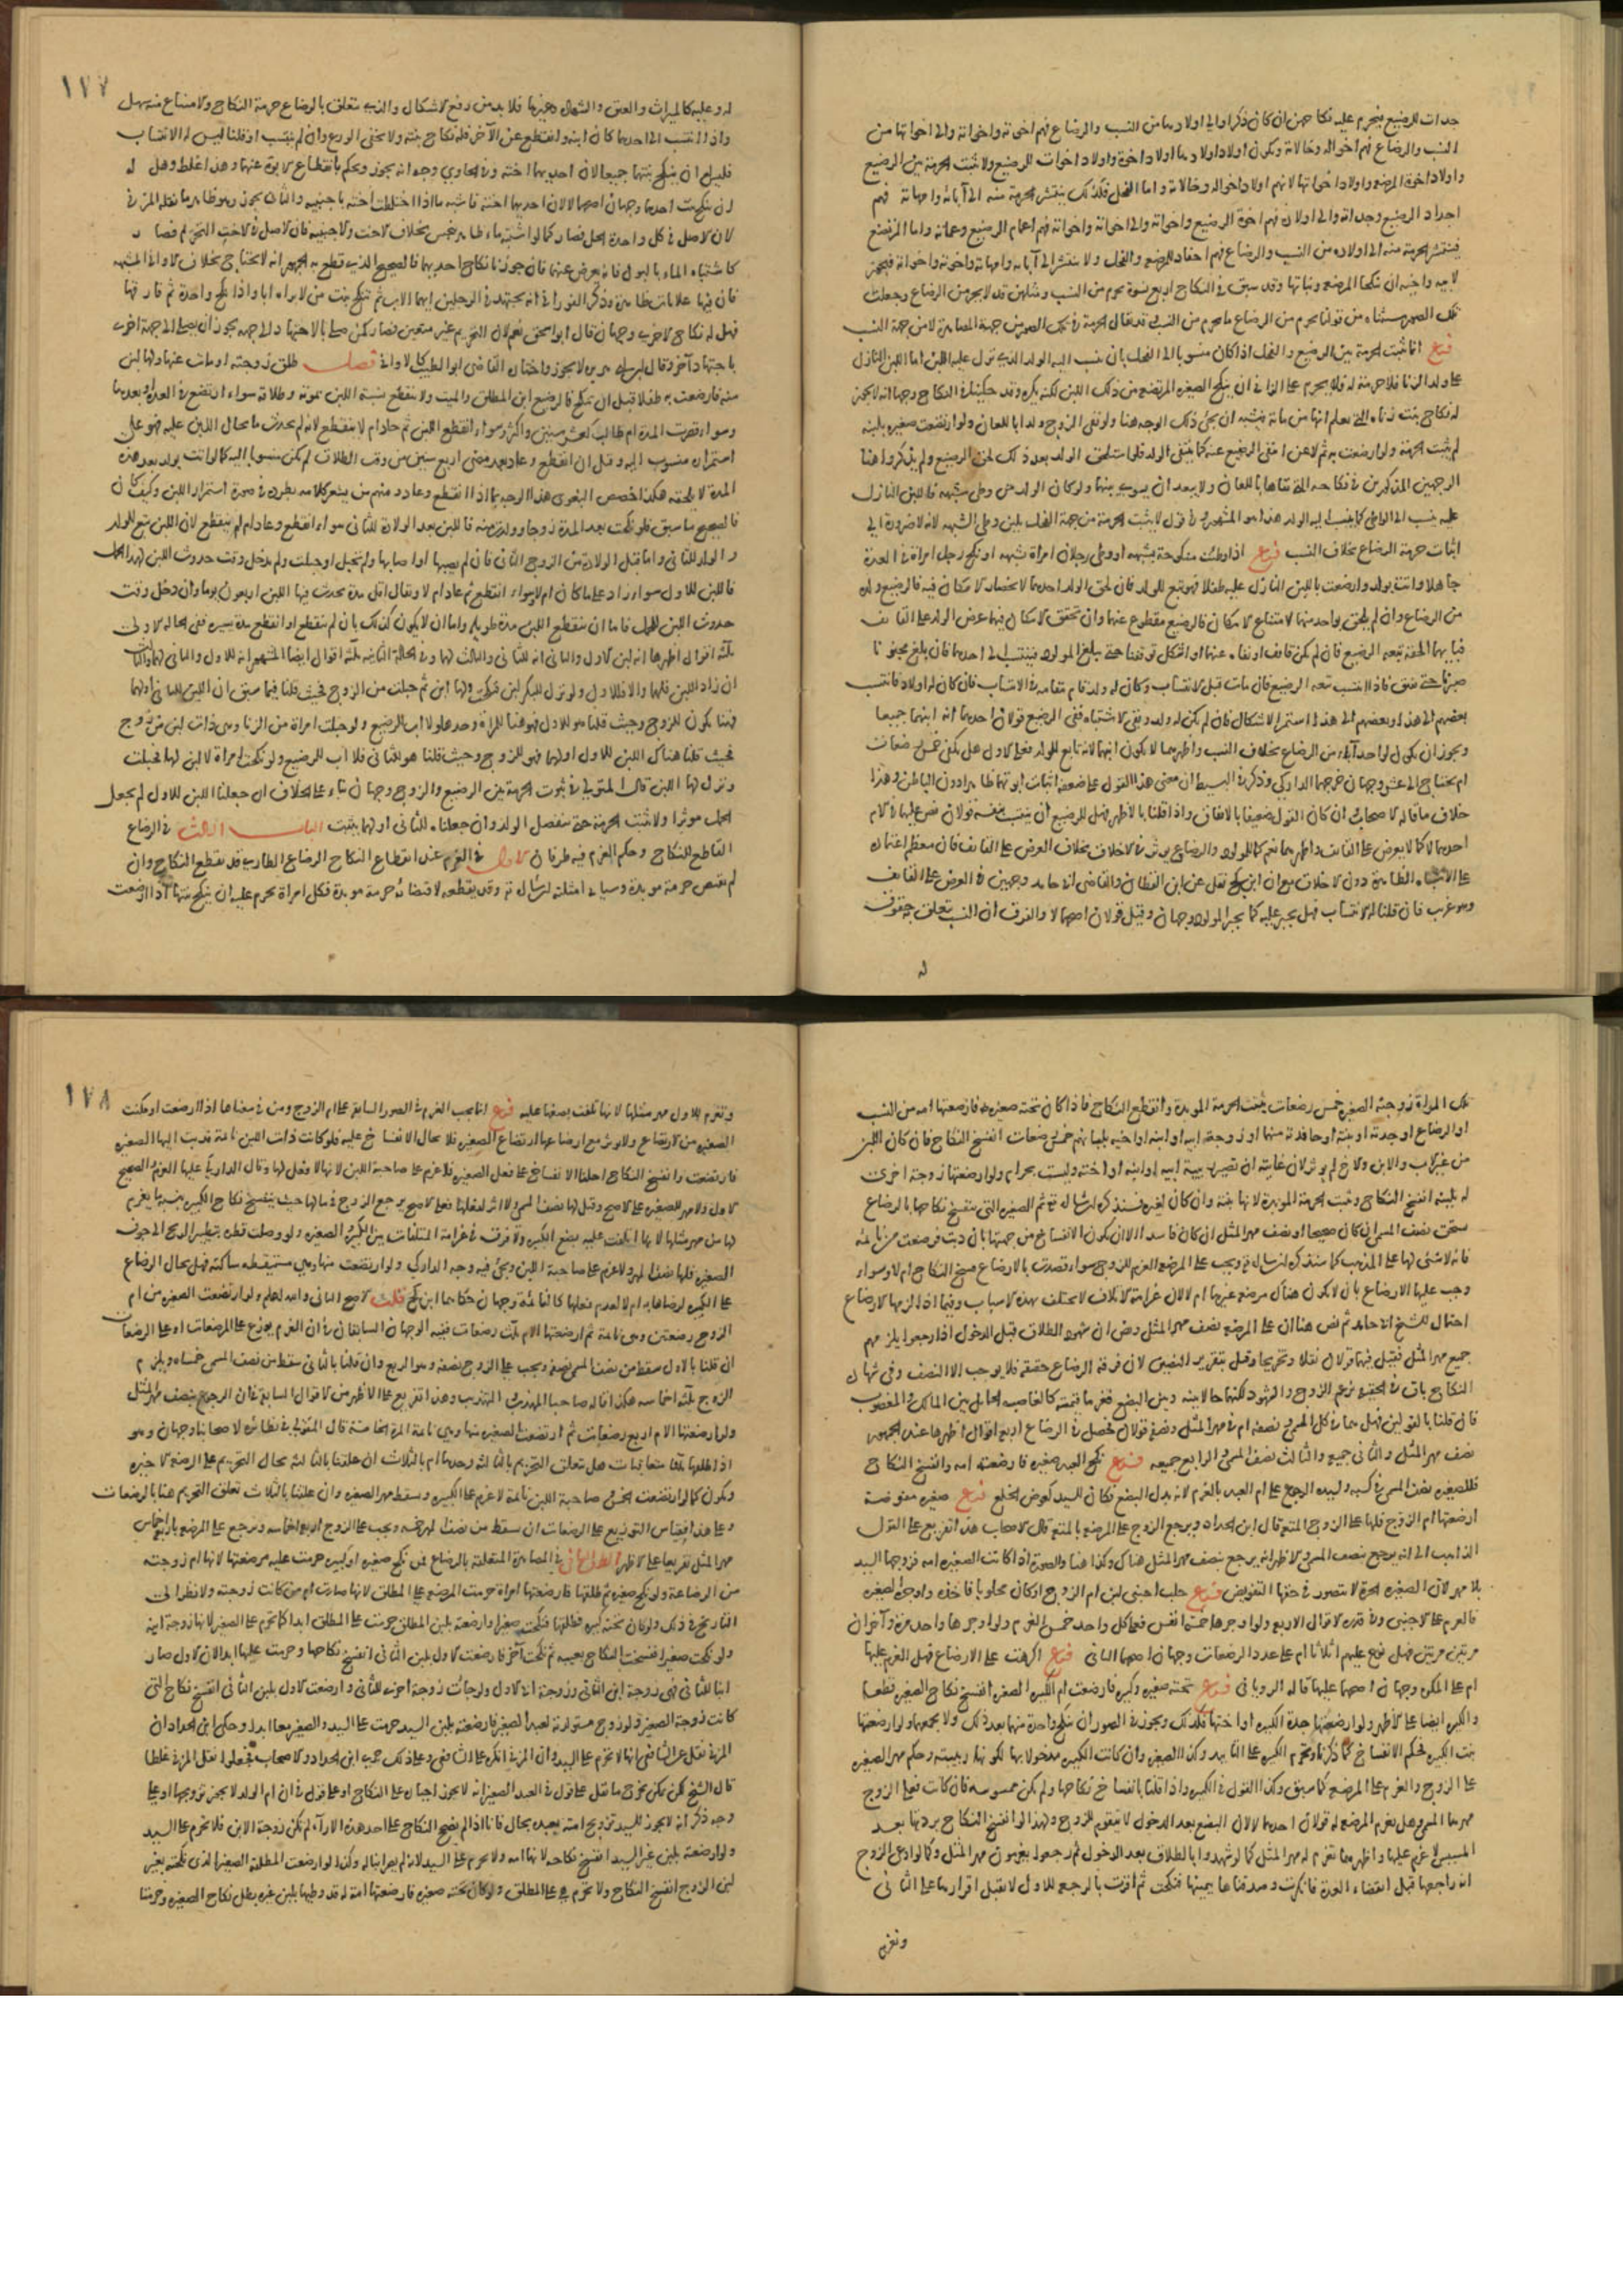 جدات للرضيع فيحرم عليه نكاحهن ان كان ذكرا والى اولادها من النسب والرضاع فهم اخوته واخواته والى اخوتها من
النسب والرضاع فهم اخواله وخالاته ويكون اولاد اولادها اولاد اخوة واولاد اخوات للرضيع ولا تثبت الحرمة بين الرضيع
واولاد اخوة المرضعة واولاد اخواتها لانهم اولاد اخواله وخالاته واما الفحل فكذلك ينتشر الحرمة منه الى آبائه وامهاته فهم
اجداد الرضيع وجداته والى اولاده فهم اخوة الرضيع واخواته والى اخوته واخواته فهم اعمام الرضيع وعماته واما المرتضع
فينتشر الحرمة منه الى اولاده من النسب والرضاع فهم احفاد للمرضعة والفحل ولا ينتشر الى آبائه وامهاته واخوته واخواته فيجوز
لابيه واخيه ان ينكحا المرضعة وبناتها وقد سبق في النكاح اربع نسوة يحرمن من النسب ومثلهن قد لا يحرمن من الرضاع وجعلت
تلك الصور مستثناة من قولنا يحرم من الرضاع ما يحرم من النسب قد يقال الحرمة في تلك الصور من جهة المصاهرة لا من جهة النسب
فرع انما تثبت الحرمة بين الرضيع والفحل اذا كان منسوبا الى الفحل بان ينسب اليه الولد الذي نزل عليه اللبن اما اللبن النازل
على ولد الزنا فلا حرمة له فلا يحرم على الزاني ان ينكح الصغيرة المرتضعة من ذلك اللبن لكنه يكره وقد حكينا في النكاح وجها انه لا يجوز
له نكاح بنت زناه التي يعلم انها من مائه فيشبه ان يجئ ذلك الوجه هنا ولو نفى الزوج ولدا باللعان ولو ارتضعت صغيرة بلبنه
لم تثبت الحرمة ولو ارضعت به ثم لاعن انتفى الرضيع عنه كما ينتفي الولد فلو استلحق الولد بعد ذلك لحق الرضيع ولم يذكروا هنا
الوجهين المذكورين في نكاحه التي نفاها باللعان ولا يبعد ان يسوى بينهما ولو كان الولد من وطئ شبهة فاللبن النازل
عليه ينسب الى الواطئ كما ينسب اليه الولد هذا هو المشهور وفي قول لا تثبت الحرمة من جهة الفحل بلبن وطئ الشبهة لانه لا ضرورة الى
اثبات حرمة الرضاع بخلاف النسب فرع اذا وطئت منكوحة بشبهة او وطئ رجلان امراة بشبهة او نكح رجل امراة في العدة
جاهلا واتت بولد وارضعت باللبن النازل عليه طفلا فهو تبع للولد فان لحق الولد احدهما لانحصار الامكان فيه فالرضيع ولده
من الرضاع وان لم يلحق واحدا منهما لامتناع الامكان فالرضيع مقطوع عنهما وان تحقق الامكان فيهما عرض الولد على القائف
فبايهما الحقه تبعه الرضيع فان لم يكن قائف او نفاه عنهما او اشكل توقفنا حتى يبلغ المولود فينتسب الى احدهما فان بلغ مجنونا
صبرنا حتى يفيق فاذا انتسب تبعه الرضيع فان مات قبل الانتساب وكان له ولد قام مقامه في الانتساب فان كان له اولاد فانتسب
بعضهم الى هذا وبعضهم الى هذا استمر الاشكال فان لم يكن له ولد وبقي الاشتباه ففي الرضيع قولان احدهما انه ابنهما جميعا
ويجوز ان يكون لواحد آباء من الرضاع بخلاف النسب واظهرهما لا يكون ابنهما لانه تابع للولد فعلى الاول هل يكفي خمس رضعات
ام يحتاج الى عشر وجهان خرجهما الداركي وذكر في البسيط ان معنى هذا القول على ضعفه اثبات ابوتهما ظاهرا دون الباطن وهذا
خلاف ما قاله الاصحاب وان كان القول ضعيفا بالاتفاق واذا قلنا بالاظهر فهل للرضيع ان ينتسب بنفسه قولان نص عليهما في الام
احدهما لا كما لا يعرض على القائف واظهرهما نعم كالمولود والرضاع يؤثر في الاخلاق بخلاف العرض على القائف فان معظم اعتماده
على الاشباه الظاهرة دون الاخلاق مع ان ابن كج نقل عن ابن القطان والقاضي ابي حامد وجهين في العرض على القائف
وهو غريب فان قلنا له الانتساب فهل يجبر عليه كما يجبر المولود وجهان وقيل قولان اصحهما لا والفرق ان النسب يتعلق به حقوق
له
١٧٧
له وعليه كالميراث والعتق والشهادة وغيرها فلا بد من دفع الاشكال والذي يتعلق بالرضاع حرمة النكاح والامتناع منه سهل
واذا انتسب الى احدهما كان ابنه وانقطع عن الآخر فله نكاح بنته ولا يخفى الورع وان لم ينتسب او قلنا ليس له الانتساب
فليس له ان ينكح بنتيهما جميعا لان احديهما اخته وفي الحاوي وجه انه يجوز ويحكم بانقطاع الابوة عنهما وهذا غلط وهل له
ان ينكح بنت احدهما وجهان اصحهما لا لان احديهما اخته فاشبه ما اذا اختلطت اخته باجنبية والثاني يجوز وهو ظاهر ما نقله المزني
لان الاصل في كل واحدة الحل فصار كما لو اشتبه ماء طاهر بنجس بخلاف الاخت والاجنبية فان الاصل في الاخت التحريم فصار
كاشتباه الماء بالبول فانه يعرض عنهما فان جوزنا نكاح احديهما فالصحيح الذي قطع به الجمهور انه لا يحتاج بخلاف الاواني المشتبهة
فان فيها علامات ظاهرة وذكر الفوراني انه يجتهد في الرجلين ايهما الاب ثم ينكح بنت من لا يراه ابا واذا نكح واحدة ثم فارقها
فهل له نكاح الاخرى وجهان قال ابو اسحق نعم لان التحريم غير متعين فصار كمن صلى بالاجتهاد الى جهة يجوز ان يصلي الى جهة اخرى
باجتهاد آخر وقال ابن ابي هريرة لا يجوز واختاره القاضي ابو الطيب كالاواني فصل طلق زوجته او مات عنها ولها لبن
منه فارضعت به طفلا قبل ان تنكح فالرضيع ابن المطلق والميت ولا تنقطع نسبة اللبن بموته وطلاقه سواء ارتضع في العدة او بعدها
وسواء قصرت المدة ام طالت كعشر سنين واكثر وسواء انقطع اللبن ثم عاد ام لا ينقطع لانه لم يحدث ما يحال اللبن عليه فهو على
استمراره منسوب اليه وقيل ان انقطع وعاد بعد مضي اربع سنين من وقت الطلاق لم يكن منسوبا اليه كما لو اتت بولد بعد هذه
المدة لا يلحقه هكذا خصص البغوي هذا الوجه بما اذا انقطع وعاد ومنهم من يشعر كلامه بطرده في صورة استمرار اللبن وكيف كان
فالصحيح ما سبق فلو نكحت بعد المدة زوجا وولدت منه فاللبن بعد الولادة للثاني سواء انقطع وعاد ام لم ينقطع لان اللبن تبع للولد
والولد للثاني واما قبل الولادة من الزوج الثاني فان لم يصبها او اصابها ولم تحبل او حبلت ولم يدخل وقت حدوث اللبن لهذا الحمل
فاللبن للاول سواء زاد على ما كان ام لا وسواء انقطع ثم عاد ام لا ويقال اقل مدة يحدث فيها اللبن اربعون يوما وان دخل وقت
حدوث اللبن للحمل فاما ان ينقطع اللبن مدة طويلة واما ان لا يكون كذلك بان لم ينقطع او انقطع مدة يسيرة ففي الحالة الاولى
ثلثة اقوال اظهرها انه لبن الاول والثاني انه للثاني والثالث لهما وفي الحالة الثانية ثلثة اقوال ايضا المشهور انه للاول والثاني لهما والثالث
ان زاد اللبن فلهما والا فللاول ولو نزل للبكر لبن فنكحت ولها لبن ثم حبلت من الزوج فحيث قلنا فيما سبق ان اللبن للثاني او لهما
فهنا يكون للزوج وحيث قلنا هو للاول فهو هنا للمراة وحدها ولا اب للرضيع ولو حبلت امراة من الزنا وهي ذات لبن من زوج
فحيث قلنا هناك اللبن للاول او لهما فهو للزوج وحيث قلنا هو للثاني فلا اب للرضيع ولو نكحت امراة لا لبن لها فحبلت
ونزل لها اللبن قال المتولي في ثبوت الحرمة بين الرضيع والزوج وجهان بناء على الخلاف ان جعلنا اللبن للاول لم يجعل
الحمل مؤثرا ولا تثبت الحرمة حتى ينفصل الولد وان جعلناه للثاني او لهما يثبت الباب الثالث في الرضاع
القاطع للنكاح وحكم الغرم فيه طرفان الاول في الغرم عند انقطاع النكاح الرضاع الطارئ قد يقطع النكاح وان
لم يقتض حرمة مؤبدة وسياتي امثلته ان شاء الله تعالى وقد يقطعه لاقتضائه حرمة مؤبدة فكل امراة يحرم عليه ان ينكح بنتها اذا ارضعت
تلك المراة زوجته الصغيرة خمس رضعات ثبتت الحرمة المؤبدة وانقطع النكاح فاذا كان تحته صغيرة فارضعتها امه من النسب
او الرضاع او جدته او بنته او حافدته منهما او زوجة ابيه او ابنه او اخيه بلبانهم خمس رضعات انفسخ النكاح فان كان اللبن
من غير الاب والابن والاخ لم يؤثر لان غايته ان تصير ربيبة ابيه او ابنه او اخيه وليست بحرام ولو ارضعتها زوجة اخرى
له بلبنه انفسخ النكاح وثبتت الحرمة المؤبدة لانها بنته وان كان لغيره فسنذكره ان شاء الله تعالى ثم الصغيرة التي ينفسخ نكاحها بالرضاع
تستحق نصف المسمى ان كان صحيحا او نصف مهر المثل ان كان فاسدا الا ان يكون الانفساخ من جهتها بان دبت فرضعت من نائمة
فانه لا شئ لها على المذهب كما سنذكره ان شاء الله تعالى ويجب على المرضعة الغرم للزوج سواء قصدت بالارضاع فسخ النكاح ام لا وسواء
وجب عليها الارضاع بان لا يكون هناك مرضعة غيرها ام لا لان غرامة الاتلاف لا تختلف بهذه الاسباب وفيما اذا لزمها الارضاع
احتمال للشيخ ابي حامد ثم نص هنا ان على المرضعة نصف مهر المثل ونص ان شهود الطلاق قبل الدخول اذا رجعوا يلزمهم
جميع مهر المثل فقيل فيهما قولان نقلا وتخريجا وقيل بتقرير النصين لان فرقة الرضاع حقيقة فلا يوجب الا النصف وفي شهادة
النكاح باق في الحقيقة بزعم الزوج والشهود لكنهما حالا بينه وبين البضع فغرما قيمته كالغاصب الحائل بين المالك والمغصوب
فان قلنا بالقولين فهل هما في كل المسمى ونصفه ام في مهر المثل ونصفه قولان فحصل في الرضاع اربع اقوال اظهرها عند الجمهور
نصف مهر المثل والثاني جميعه والثالث نصف المسمى والرابع جميعه فرع نكح العبد صغيرة فارضعته امه وانفسخ النكاح
فللصغيرة نصف المسمى في كسبه ولسيده الرجوع على ام العبد بالغرم لانه بدل البضع فكان للسيد كعوض الخلع فرع صغيرة مفوضة
ارضعتها ام الزوج فلها على الزوج المتعة قال ابن الحداد ويرجع الزوج على المرضعة بالمتعة قال الاصحاب هذا تفريع على القول
الذاهب الى انه يرجع بنصف المسمى والاظهر انه يرجع بنصف مهر المثل هناك وكذا هنا والصورة اذا كانت الصغيرة امة فزوجها السيد
بلا مهر لان الصغيرة الحرة لا يتصور في حقها التفويض فرع حلب اجنبي لبن ام الزوج او كان محلوبا فاخذه واوجره الصغيرة
فالغرم على الاجنبي وفي قدره الاقوال الاربع ولو اوجرها خمسة انفس فعلى كل واحد خمس الغرم ولو اوجرها واحد مرة وآخران
مرتين مرتين فهل يوزع عليهم اثلاثا ام على عدد الرضعات وجهان اصحهما الثاني فرع اكرهت على الارضاع فهل الغرم عليها
ام على المكره وجهان اصحهما عليها قاله الروياني فرع تحته صغيرة وكبيرة فارضعت ام الكبيرة الصغيرة انفسخ نكاح الصغيرة قطعا
والكبيرة ايضا على الاظهر ولو ارضعتها جدة الكبيرة او اختها فكذلك ويجوز في الصور ان ينكح واحدة منهما بعد ذلك ولا يجمعهما ولو ارضعتها
بنت الكبيرة فحكم الانفساخ كما ذكرناه وتحرم الكبيرة على التابيد وكذا الصغيرة وان كانت الكبيرة مدخولا بها لكونها ربيبته وحكم مهر الصغيرة
على الزوج والغرم على المرضعة كما سبق وكذا القول في الكبيرة واذا قلنا بانفساخ نكاحها ولم تكن ممسوسة فان كانت فعلى الزوج
مهرها المسمى وهل يغرم المرضعة له قولان احدهما لا لان البضع بعد الدخول لا يتقوم للزوج ولهذا لو انفسخ النكاح بردتها بعد
المسيس لا غرم عليها واظهرهما تغرم له مهر المثل كما لو شهدوا بالطلاق بعد الدخول ثم رجعوا يغرمون مهر المثل وكما لو ادعى الزوج
انه راجعها قبل انقضاء العدة فانكرت وصدقناها بيمينها فنكحت ثم اقرت بالرجعة للاول لا يقبل اقرارها على الثاني
وتغرم
١٧٨
وتغرم للاول مهر مثلها لانها اتلفت بضعها عليه فرع انما يجب الغرم في الصور السابقة على ام الزوج ومن في معناها اذا ارضعت او مكنت
الصغيرة من الارتضاع ولا يؤثر مع ارضاعها ارتضاع الصغيرة فلا يحال الانفساخ عليه فلو كانت ذات اللبن نائمة فدبت اليها الصغيرة
فارتضعت وانفسخ النكاح احلنا الانفساخ على فعل الصغيرة فلا غرم على صاحبة اللبن لانها لا فعل لها وقال الداركي عليها الغرم والصحيح
الاول ولا مهر للصغيرة على الاصح وقيل لها نصف المسمى ولا اثر لفعلها فعلى الاصح يرجع الزوج في مالها حيث ينفسخ نكاح الكبيرة بنسبة ما يغرم
لها من مهر مثلها لانها اتلفت عليه بضع الكبيرة ولا فرق في غرامة المتلفات بين الكبير والصغيرة ولو وصلت قطرة بتطيير الريح الى جوف
الصغيرة فلها نصف المهر ولا غرم على صاحبة اللبن ويجئ فيه وجه الداركي ولو ارتضعت منها وهي مستيقظة ساكتة فهل يحال الرضاع
على الكبيرة لرضاها به ام لا لعدم فعلها كالنائمة وجهان حكاهما ابن كج قلت الاصح الثاني والله اعلم ولو ارتضعت الصغيرة من ام
الزوج رضعتين وهي نائمة ثم ارضعتها الام ثلث رضعات ففيه الوجهان السابقان في ان الغرم يوزع على المرضعات او على الرضعات
ان قلنا بالاول سقط من نصف المسمى نصفه ويجب على الزوج نصفه وهو الربع وان قلنا بالثاني سقط من نصف المسمى خمساه ويلزم
الزوج ثلثة اخماسه هكذا قاله صاحبا المهذب والتهذيب وهذا تفريع على الاظهر من الاقوال السابقة في ان الرجوع بنصف مهر المثل
ولو ارضعتها الام اربع رضعات ثم ارتضعت الصغيرة منها وهي نائمة المرة الخامسة قال المتولي في نظائره لاصحابنا وجهان وهو
اذا طلقها ثلثا متعاقبات هل يتعلق التحريم بالثالثة وحدها ام بالثلاث ان علقنا بالثالثة يحال التحريم على الرضعة الاخيرة
ويكون كما لو ارتضعت الخمس وصاحبة اللبن نائمة لا غرم على الكبيرة وسقط مهر الصغيرة وان علقنا بالثلاث تعلق التحريم هنا بالرضعات
وعلى هذا فقياس التوزيع على الرضعات ان يسقط من نصف المهر خمسه ويجب على الزوج اربعة اخماسه ويرجع على المرضعة باربعة اخماس
مهر المثل تفريعا على الاظهر الطرف الثاني في المصاهرة المتعلقة بالرضاع فمن نكح صغيرة او كبيرة حرمت عليه مرضعتها لانها ام زوجته
من الرضاعة ولو نكح صغيرة ثم طلقها فارضعتها امراة حرمت المرضعة على المطلق لانها صارت ام من كانت زوجته ولا نظر الى
التاريخ في ذلك ولو كان تحته كبيرة فطلقها فنكحت صغيرا وارضعته بلبن المطلق حرمت على المطلق ابدا كما تحرم على الصغير لانها زوجة ابنه
ولو نكحت صغيرا فسخت النكاح بعيبه ثم نكحت آخر فارضعت الاول بلبن الثاني انفسخ نكاحها وحرمت عليهما ابدا لان الاول صار
ابنا للثاني فهي زوجة ابن الثاني وزوجة ابي الاول ولو جاءت زوجة اخرى للثاني وارضعت الاول بلبن الثاني انفسخ نكاح التي
كانت زوجة الصغير ولو زوج مستولدته لعبده الصغير فارضعته بلبن السيد حرمت على السيد والصغير معا ابدا وحكى ابن الحداد ان
المزني نقل عن الشافعي انها لا تحرم على السيد وان المزني انكره على الشافعي وعلى ذلك جرى ابن الحداد والاصحاب فجعلوا نقل المزني غلطا
قال الشيخ لكن يمكن تخريج ما نقل على قول في العبد الصغير انه لا يجوز اجباره على النكاح او على قول في ان ام الولد لا يجوز تزويجها او على
وجه ذكر انه لا يجوز للسيد تزويج امته بعبده بحال فانا اذا لم نصحح النكاح على احد هذه الآراء لم تكن زوجة الابن فلا تحرم على السيد
ولو ارضعته بلبن غير السيد انفسخ نكاحه لانها امه ولا تحرم على السيد لانه لم يصر ابنا له وكذا لو ارضعت المطلقة الصغير الذي نكحته بغير
لبن الزوج انفسخ النكاح ولا تحرم هي على المطلق ولو كان تحته صغيرة فارضعتها امة له قد وطئها بلبن غيره بطل نكاح الصغيرة وحرمتا